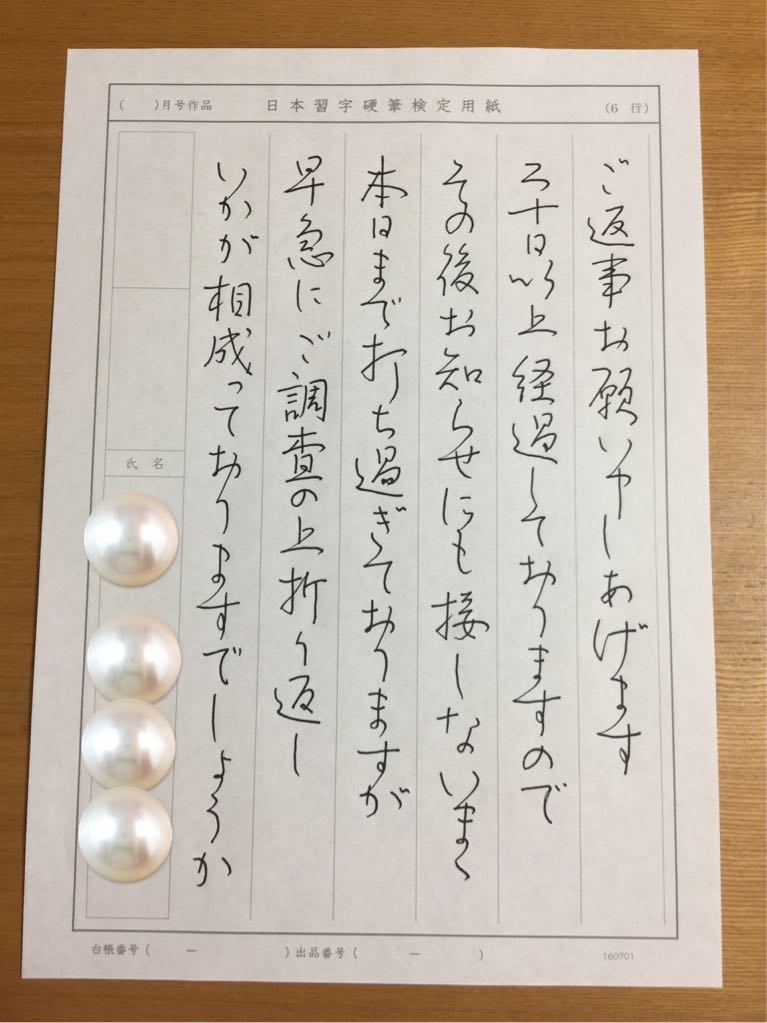 ( )月号作品 日本習字硬筆検定用紙 (6 行)
ご返事お願い申しあげます
三十日以上経過しておりますので
その後お知らせにも接しないまゝ
本日まで打ち過ぎておりますが
早急にご調査の上折り返し
いかが相成っておりますでしょうか
氏名
台帳番号( ー )出品番号( ー )
160701